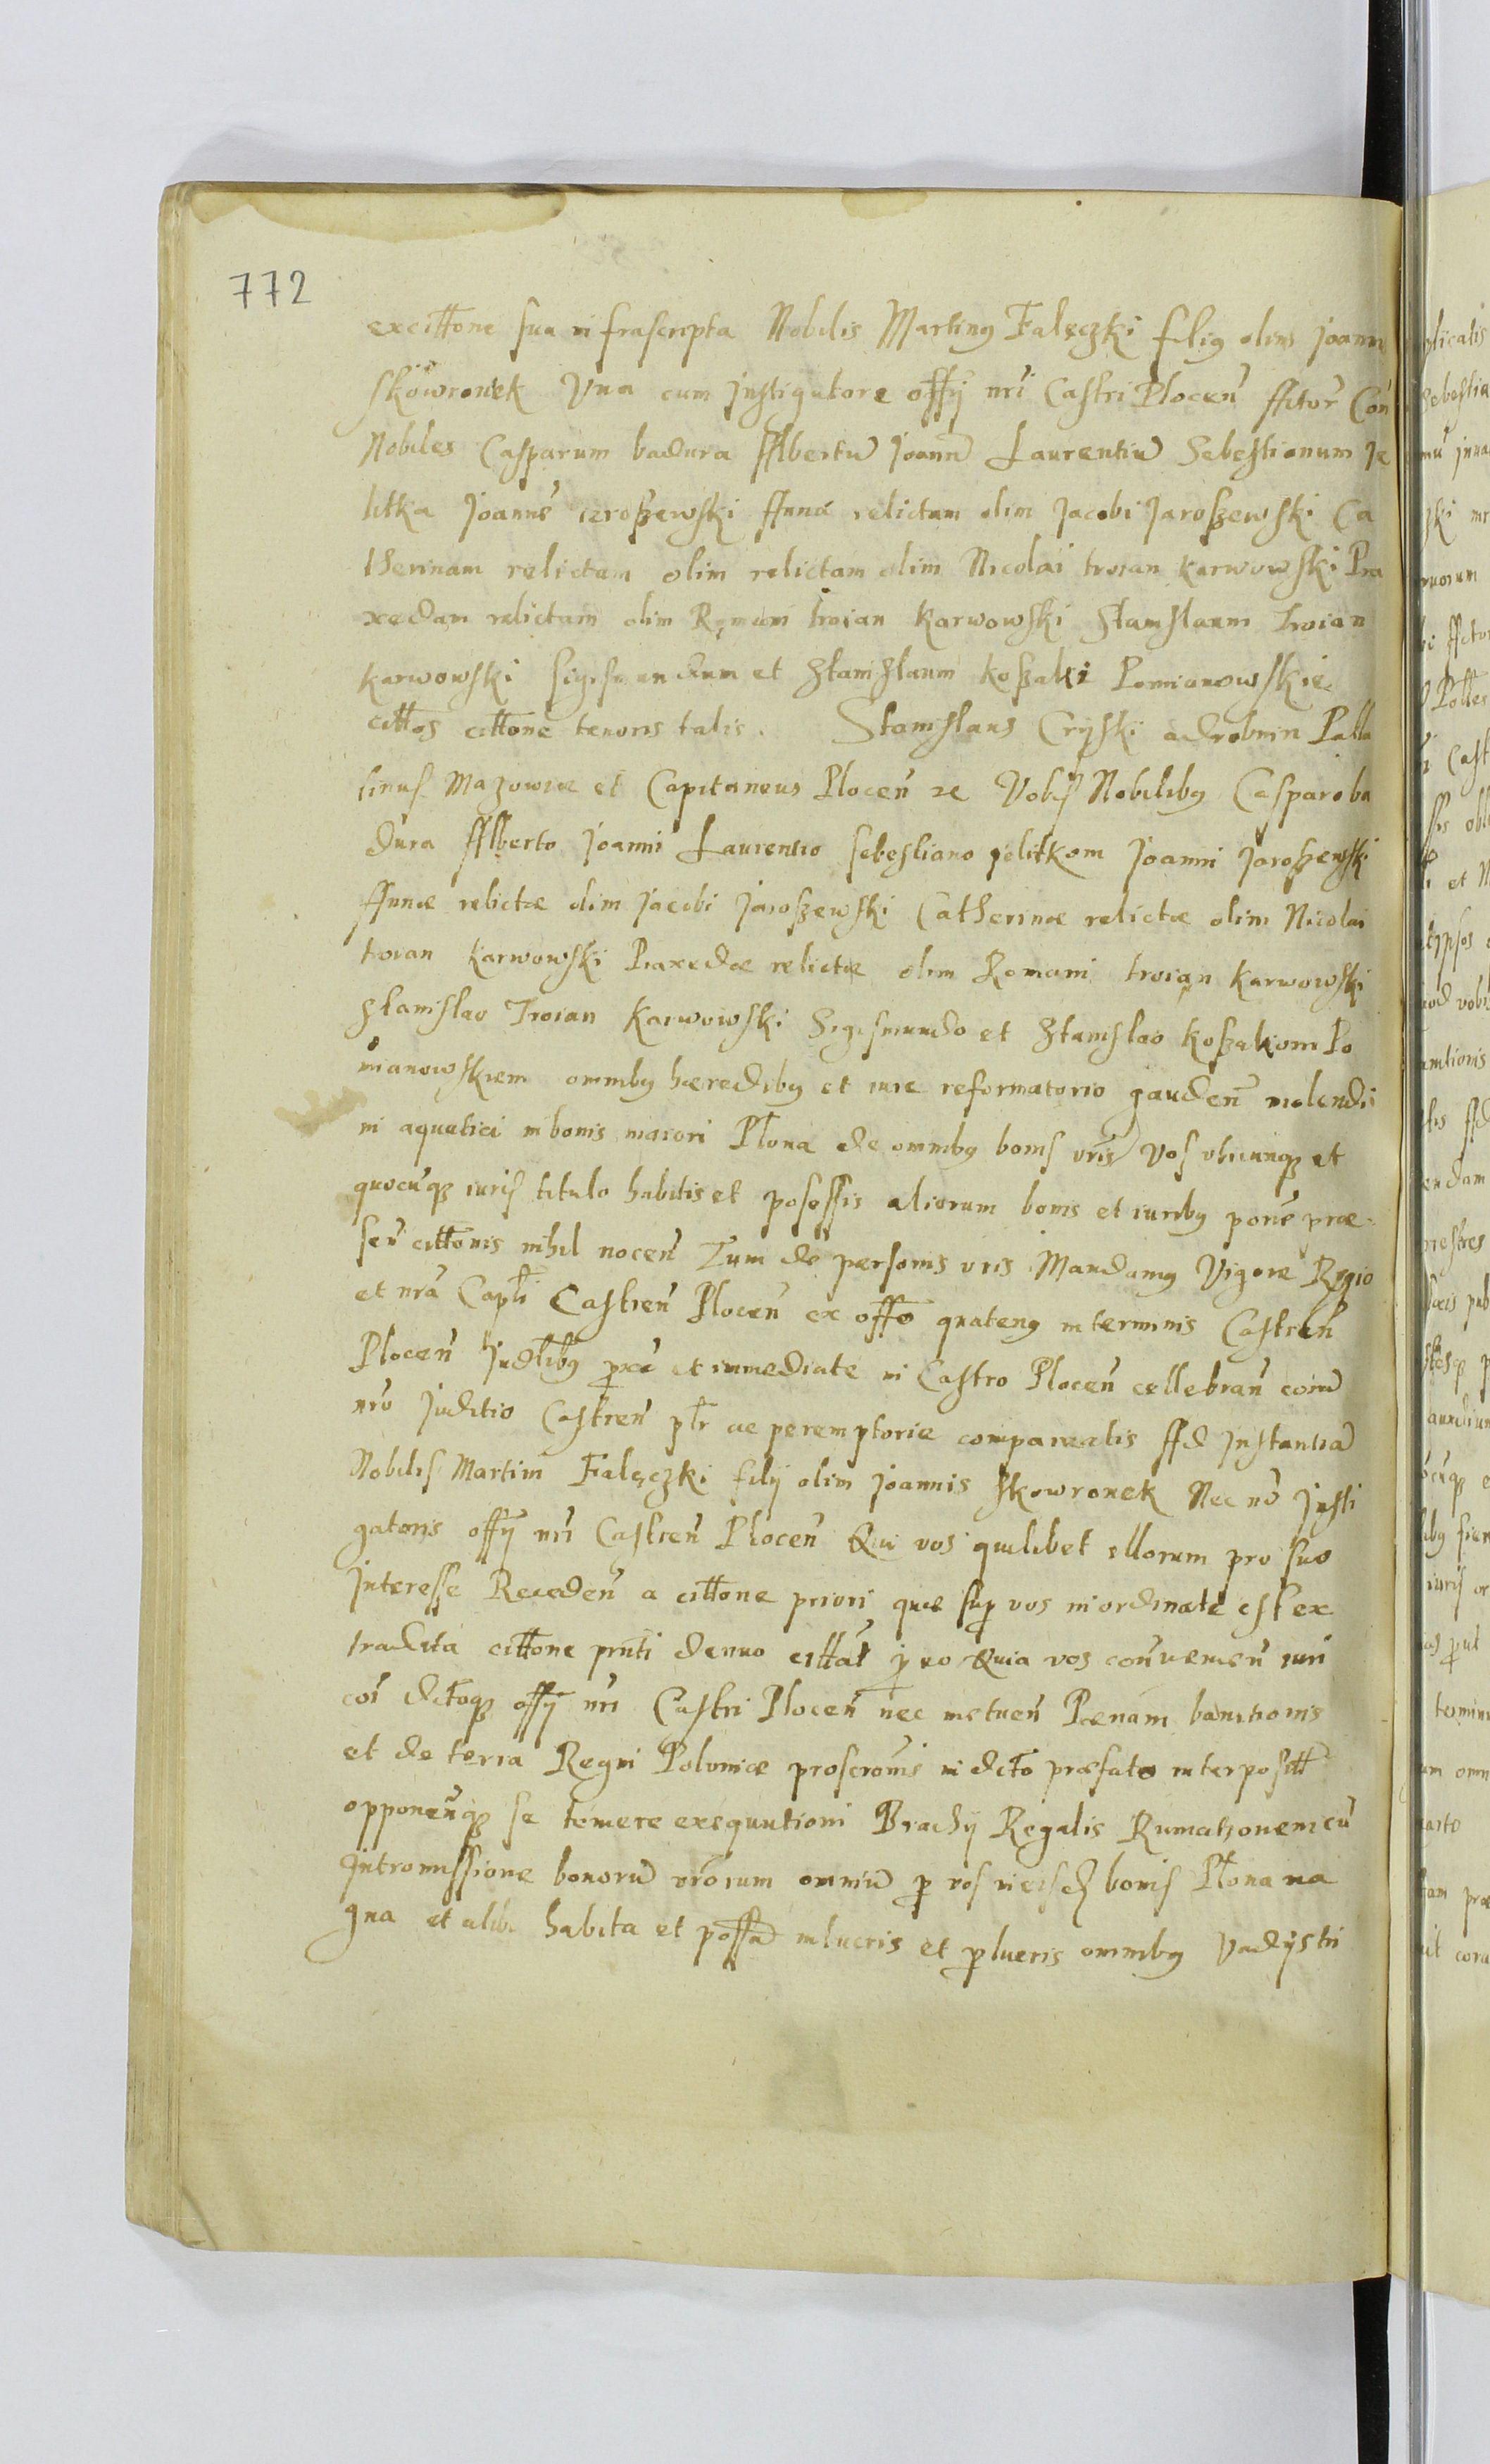 772
excittone sua infrascripta Nobilis Martinus Falęczki filius olim Joann
Skowronek Una cum Instigatore offÿ nri Castri Plocen Actor Con
Nobiles Casparum badura Albertu Joann Laurentiu Sebestianum Je
litka Joanne iaroszewski Anna relictam olim Jacobi Jaroszewski Ca
therinam relictam olim relictam olim Nicolai troian karwowski Pra
xedam relictam olim Romani troian Karwowski Stanislaum Troian
karwowski Sigismundum et Stanislaum koszaki Pomianowskie
cittos cittone tenoris talis. Stanislaus Cryski adrobnin Palla
tinus Mazowiæ et Capitaneus Plocen ac Vobis Nobilibus Casparo ba
dura Alberto Joanni Laurentio sebestiano jelitkom Joanni Jaroszewski
Annæ relictæ olim Jacobi Jaroszewski Catherinæ relictæ olim Nicolai
troian karwowski Praxedæ relictæ olim Romani troian karwowski
Stanislao Troian Karwowski Sigismundo et Stanislao koszakom Po
mianowskiem omnibus hæredibus et iure reformatorio gauden molendi
ni aquatici in bonis maiori Płona de omnibus bonis vris Vos vbicunque et
quocunque iuris titulo habitis et posessis aliorum bonis et iuribus porre præ
sen cittonis nihil nocen Tum de personis vris Mandamus Vigore Regio
et nra Capti Castren Plocen ex offo quatenus in terminis Castren
Plocen Judlibus pxe et immediate in Castro Plocen cellebran coram
nro Juditio Castren ptr ac peremptorie compareatis Ad Instantia
Nobilis Martini Falęczki filÿ olim Joannis Skowronek Nec no Insti
gatoris offÿ nri Castren Plocen Qui vos quilibet illorum pro suo
Interesse Receden a cittone priori quæ sup vos inordinate est ex
tradita cittone pnti denuo cittat p eo Quia vos conuenien iuri
coi dictoque offÿ nri Castri Plocen nec metuen Pænam banitionis
et de terra Regni Poloniæ proscronis in dicto præfato interposit
opponenque se temere exequutioni Brachÿ Regalis Rumationem cu
Intromissione bonoru vrorum omniu p vos in eisd bonis Płona ma
gna et alibi habita et possa in lucris et plucris omnibus Vadÿstri